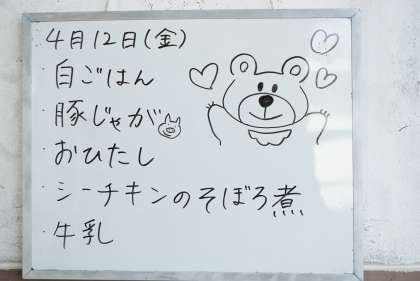 4月12日(金)
・白ごはん
・豚じゃが
・おひたし
・シーチキンのそぼろ煮
・牛乳